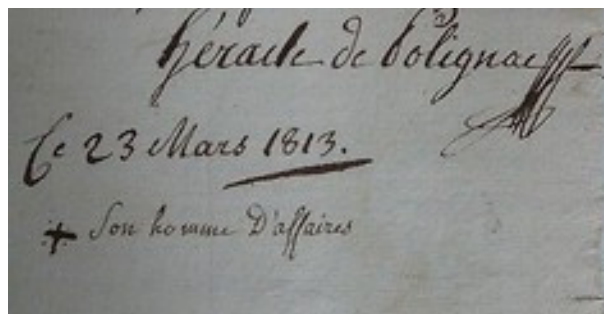 héracle de Polignac
Ce 23 Mars 1813.
+ Son homme D'affaires